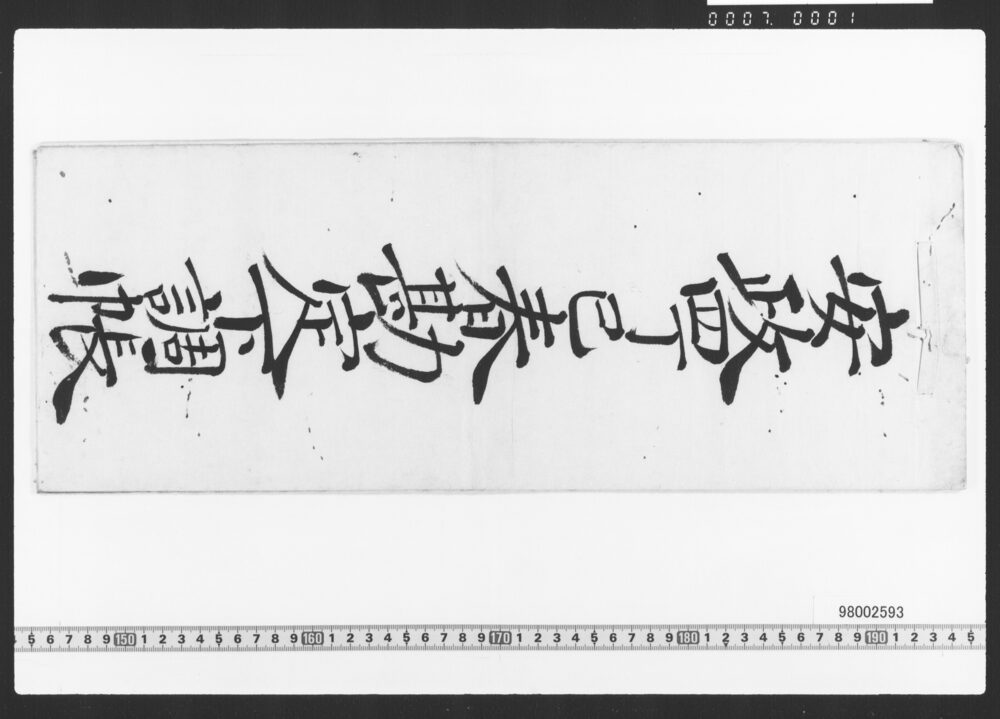 0007.0001
安政四丁巳春勘定下調帳
98002593
5 6 7 8 9 150 1 2 3 4 5 6 7 8 9 160 1 2 3 4 5 6 7 8 9 170 1 2 3 4 5 6 7 8 9 180 1 2 3 4 5 6 7 8 9 190 1 2 3 4 5